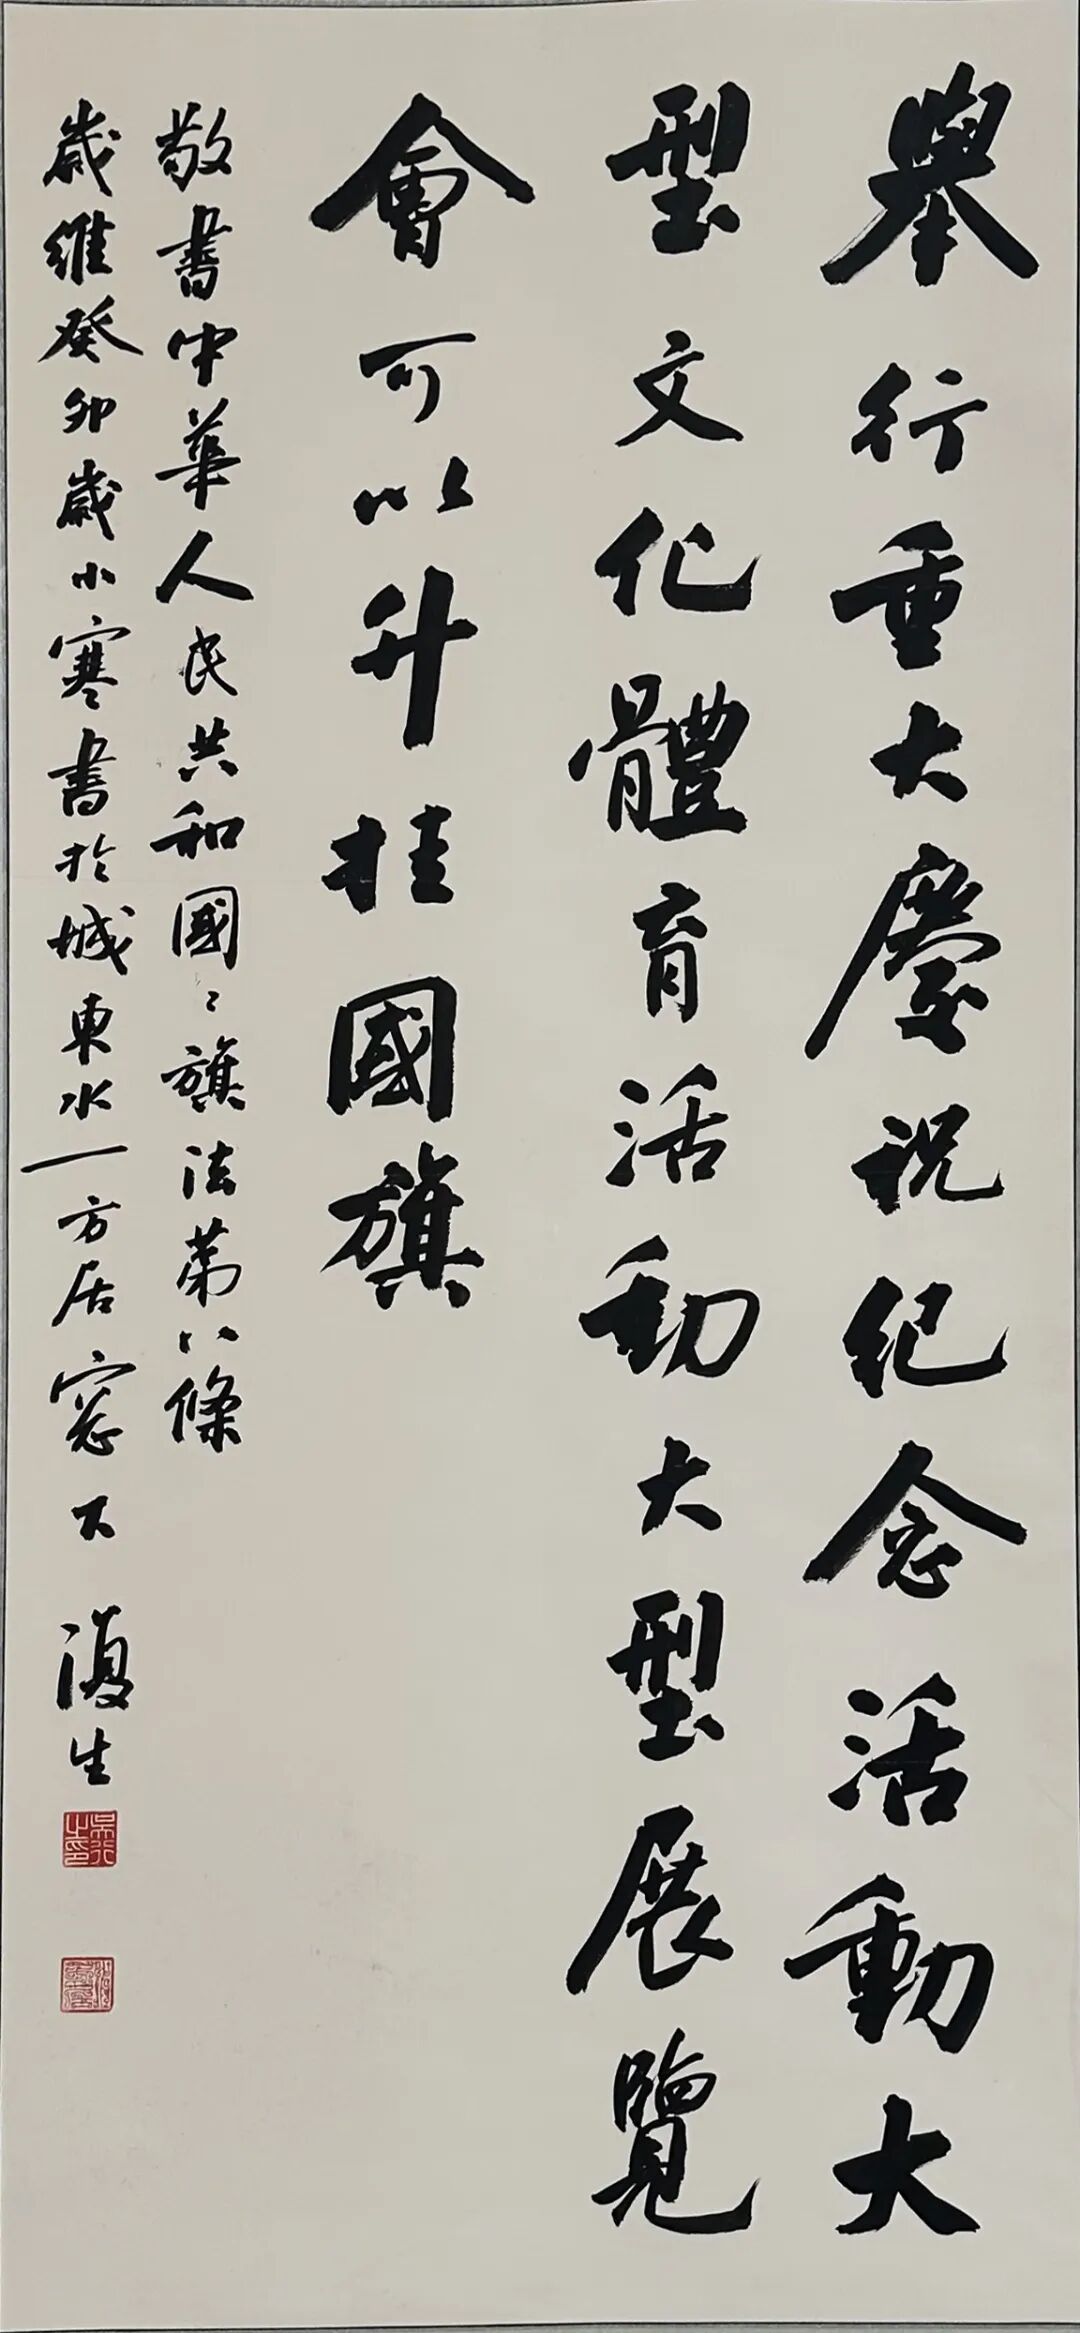 舉行重大慶祝纪念活動大
型文化體育活動大型展覽
會可以升挂國旗
敬書中華人民共和國〻旗法第八條
歲維癸卯歲小寒書於城東水一方居窓下 復生